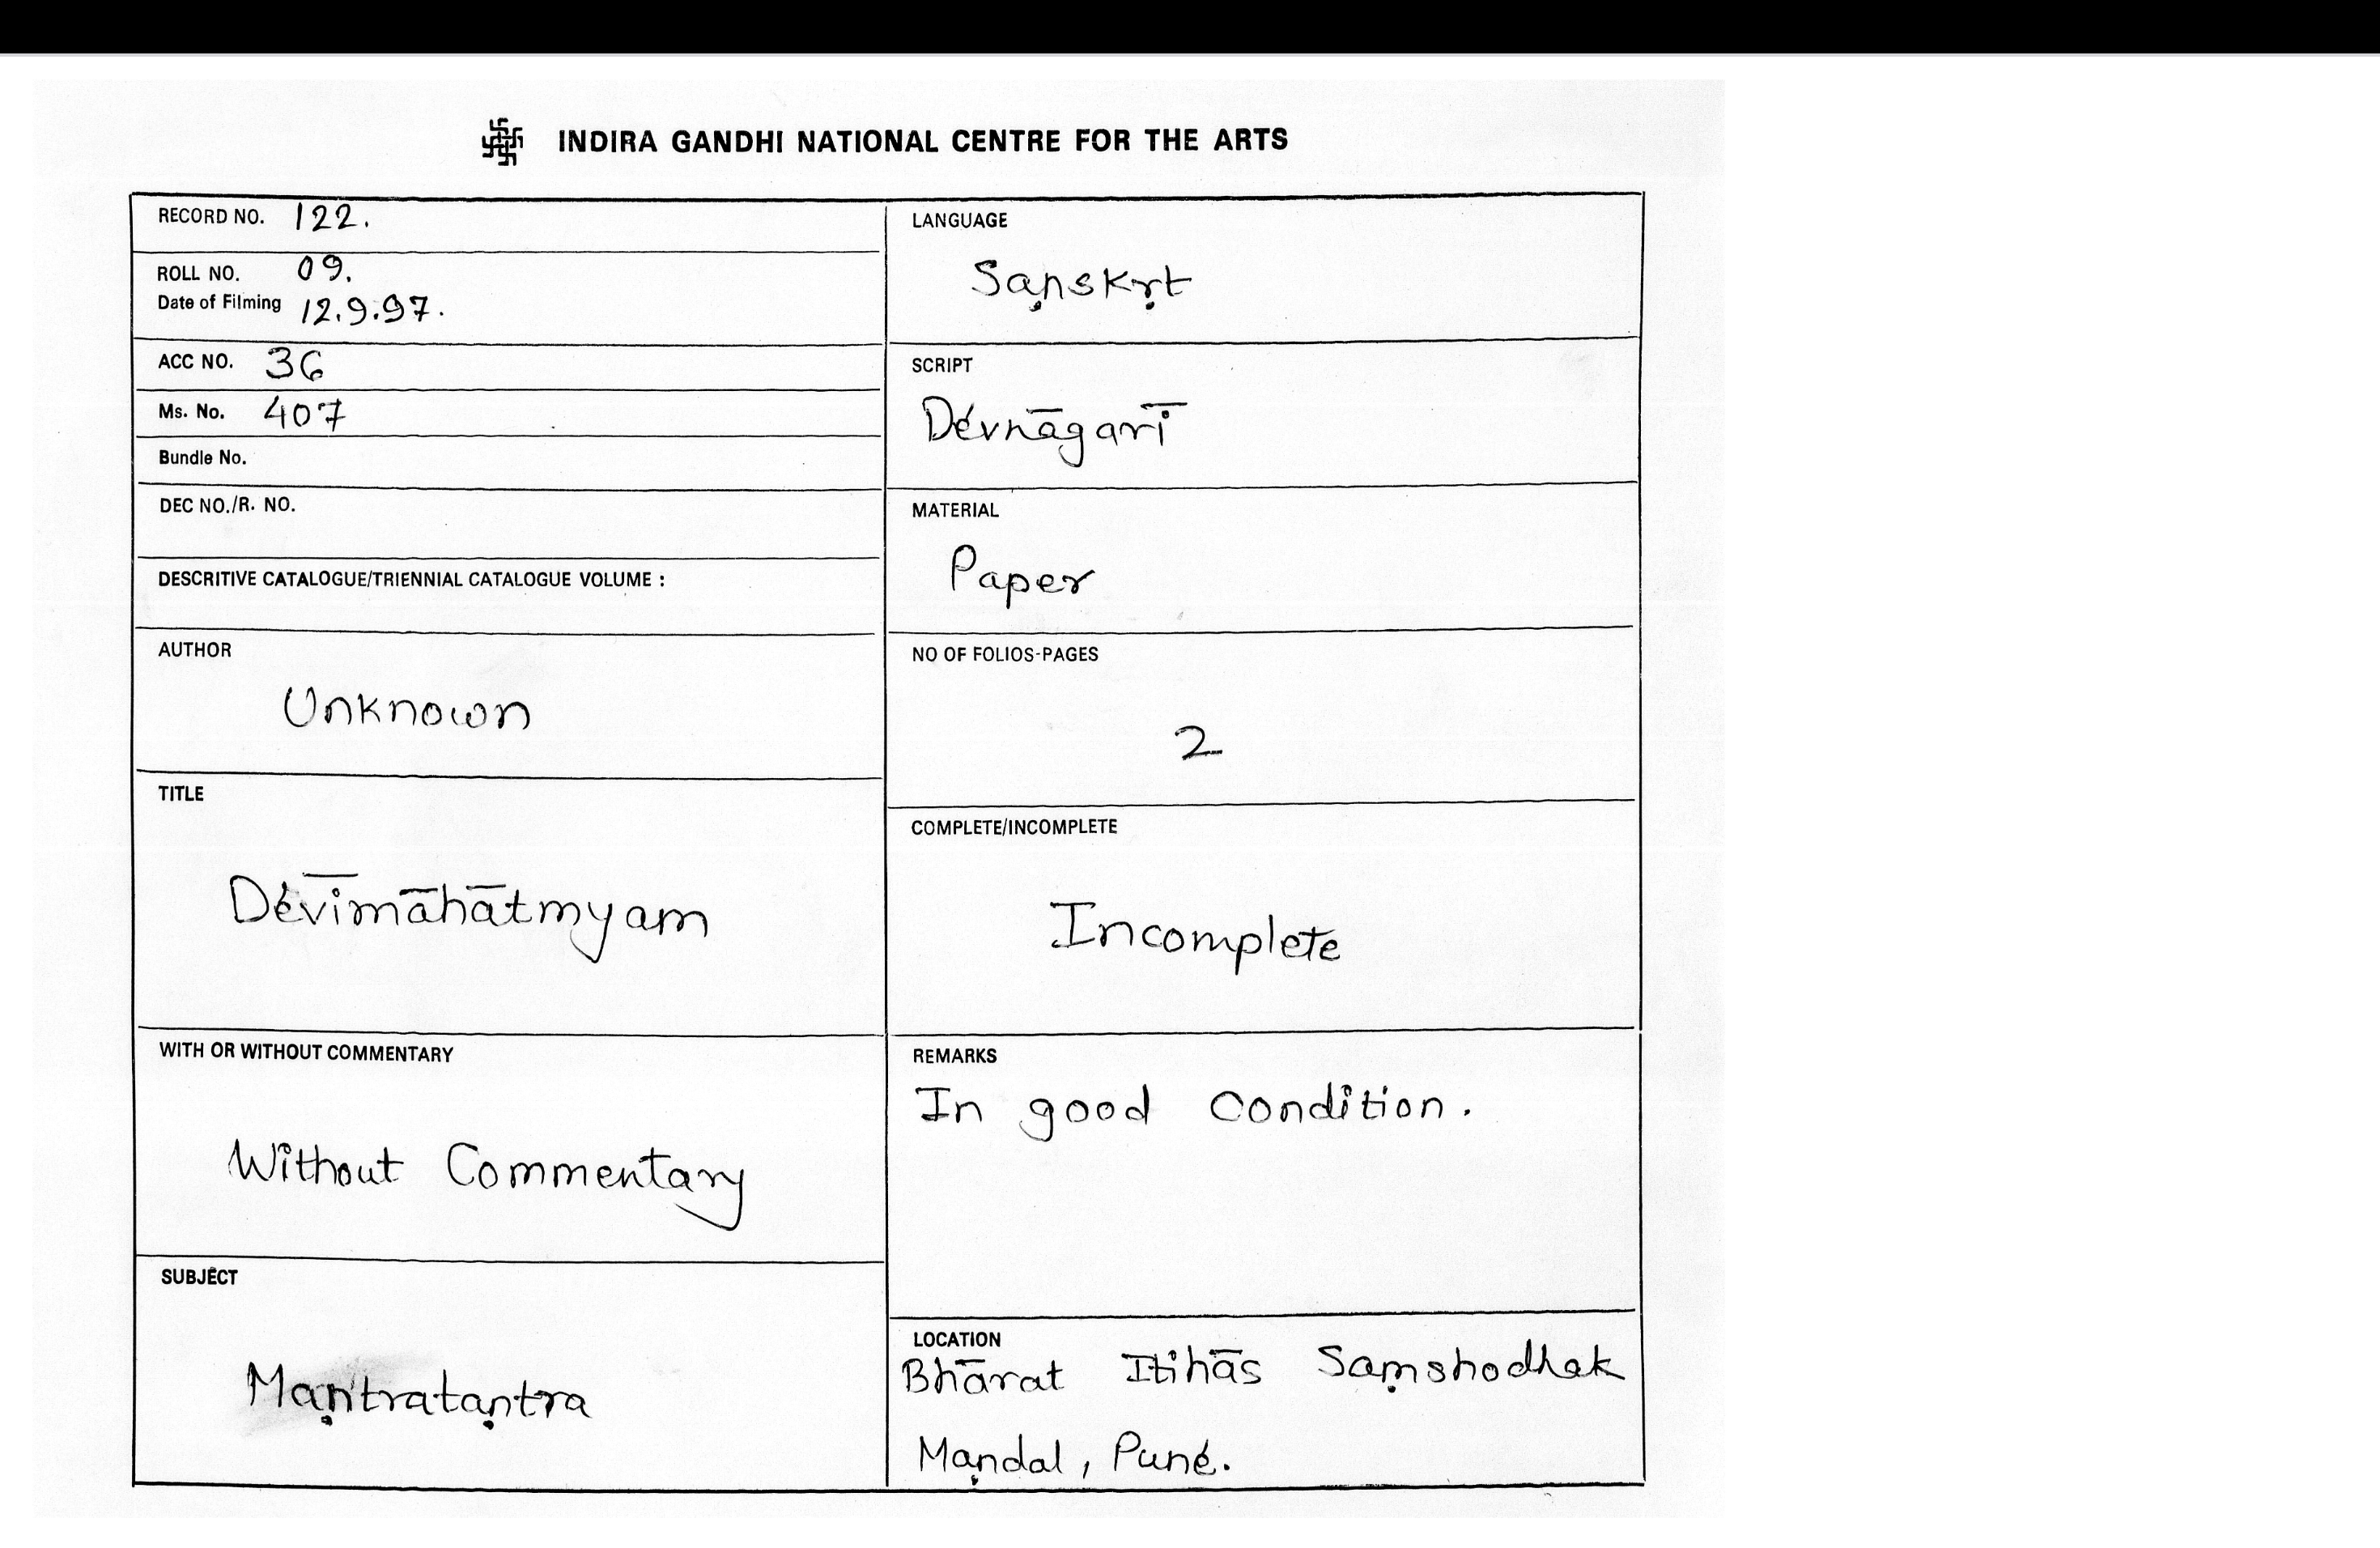 INDIRA GANDHI NATIONAL CENTRE FOR THE ARTS
RECORD NO. 122.
ROLL NO. 09.
Date of Filming 12.9.97.
ACC NO. 36
Ms. No. 407
Bundle No.
DEC NO./R. NO.
DESCRITIVE CATALOGUE/TRIENNIAL CATALOGUE VOLUME :
AUTHOR
Unknown
TITLE
Dévīmāhātmyam
WITH OR WITHOUT COMMENTARY
Without Commentary
SUBJECT
Maṇtrataṇtra
LANGUAGE
Saṇskṛt
SCRIPT
Dévnāgarī
MATERIAL
Paper
NO OF FOLIOS-PAGES
2
COMPLETE/INCOMPLETE
Incomplete
REMARKS
In good Condition.
LOCATION
Bhārat Itihās Saṃshodhak
Maṇdal, Puné.